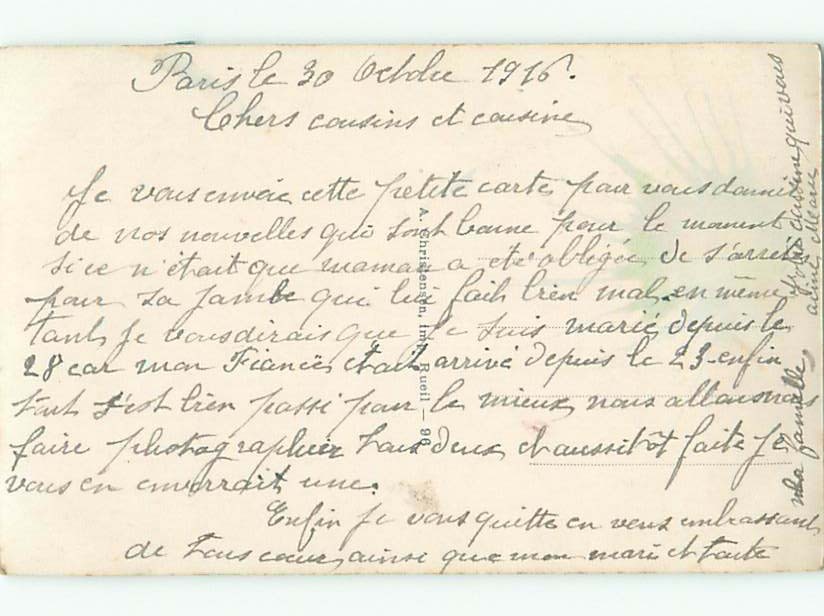 Paris le 30 Octobre 1916.
Chers cousins et cousine
Je vous envoie cette petite carte pour vous donné
de nos nouvelles qui sont bonne pour le moment
si ce n'était que maman a été obligée de s'arreté
pour sa jambe qui lui fait bien mal. en même
tant je vous dirais que je suis marié depuis le
28 car mon Fiancé etait arrivé depuis le 23 enfin
tout s'est bien passé pour le mieux nous allons nous
faire photographier tous deux et aussitôt faite je
vous en enverrait une.
Enfin je vous quitte en vous embrassant
de tous cœur, ainsi que mon mari et toute
ma famille votre cousine qui vous
aime
A. Christensen, imp. Rueil — 96